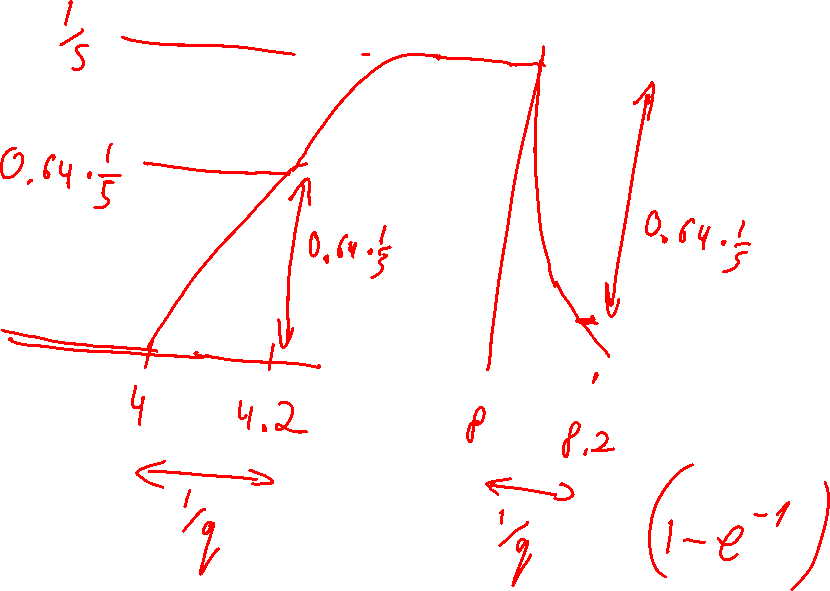 1/5
0.64 · 1/5
0.64 · 1/5
0.64 · 1/5
4 4.2 8 8.2
1/q 1/q
(1 - e^-1)